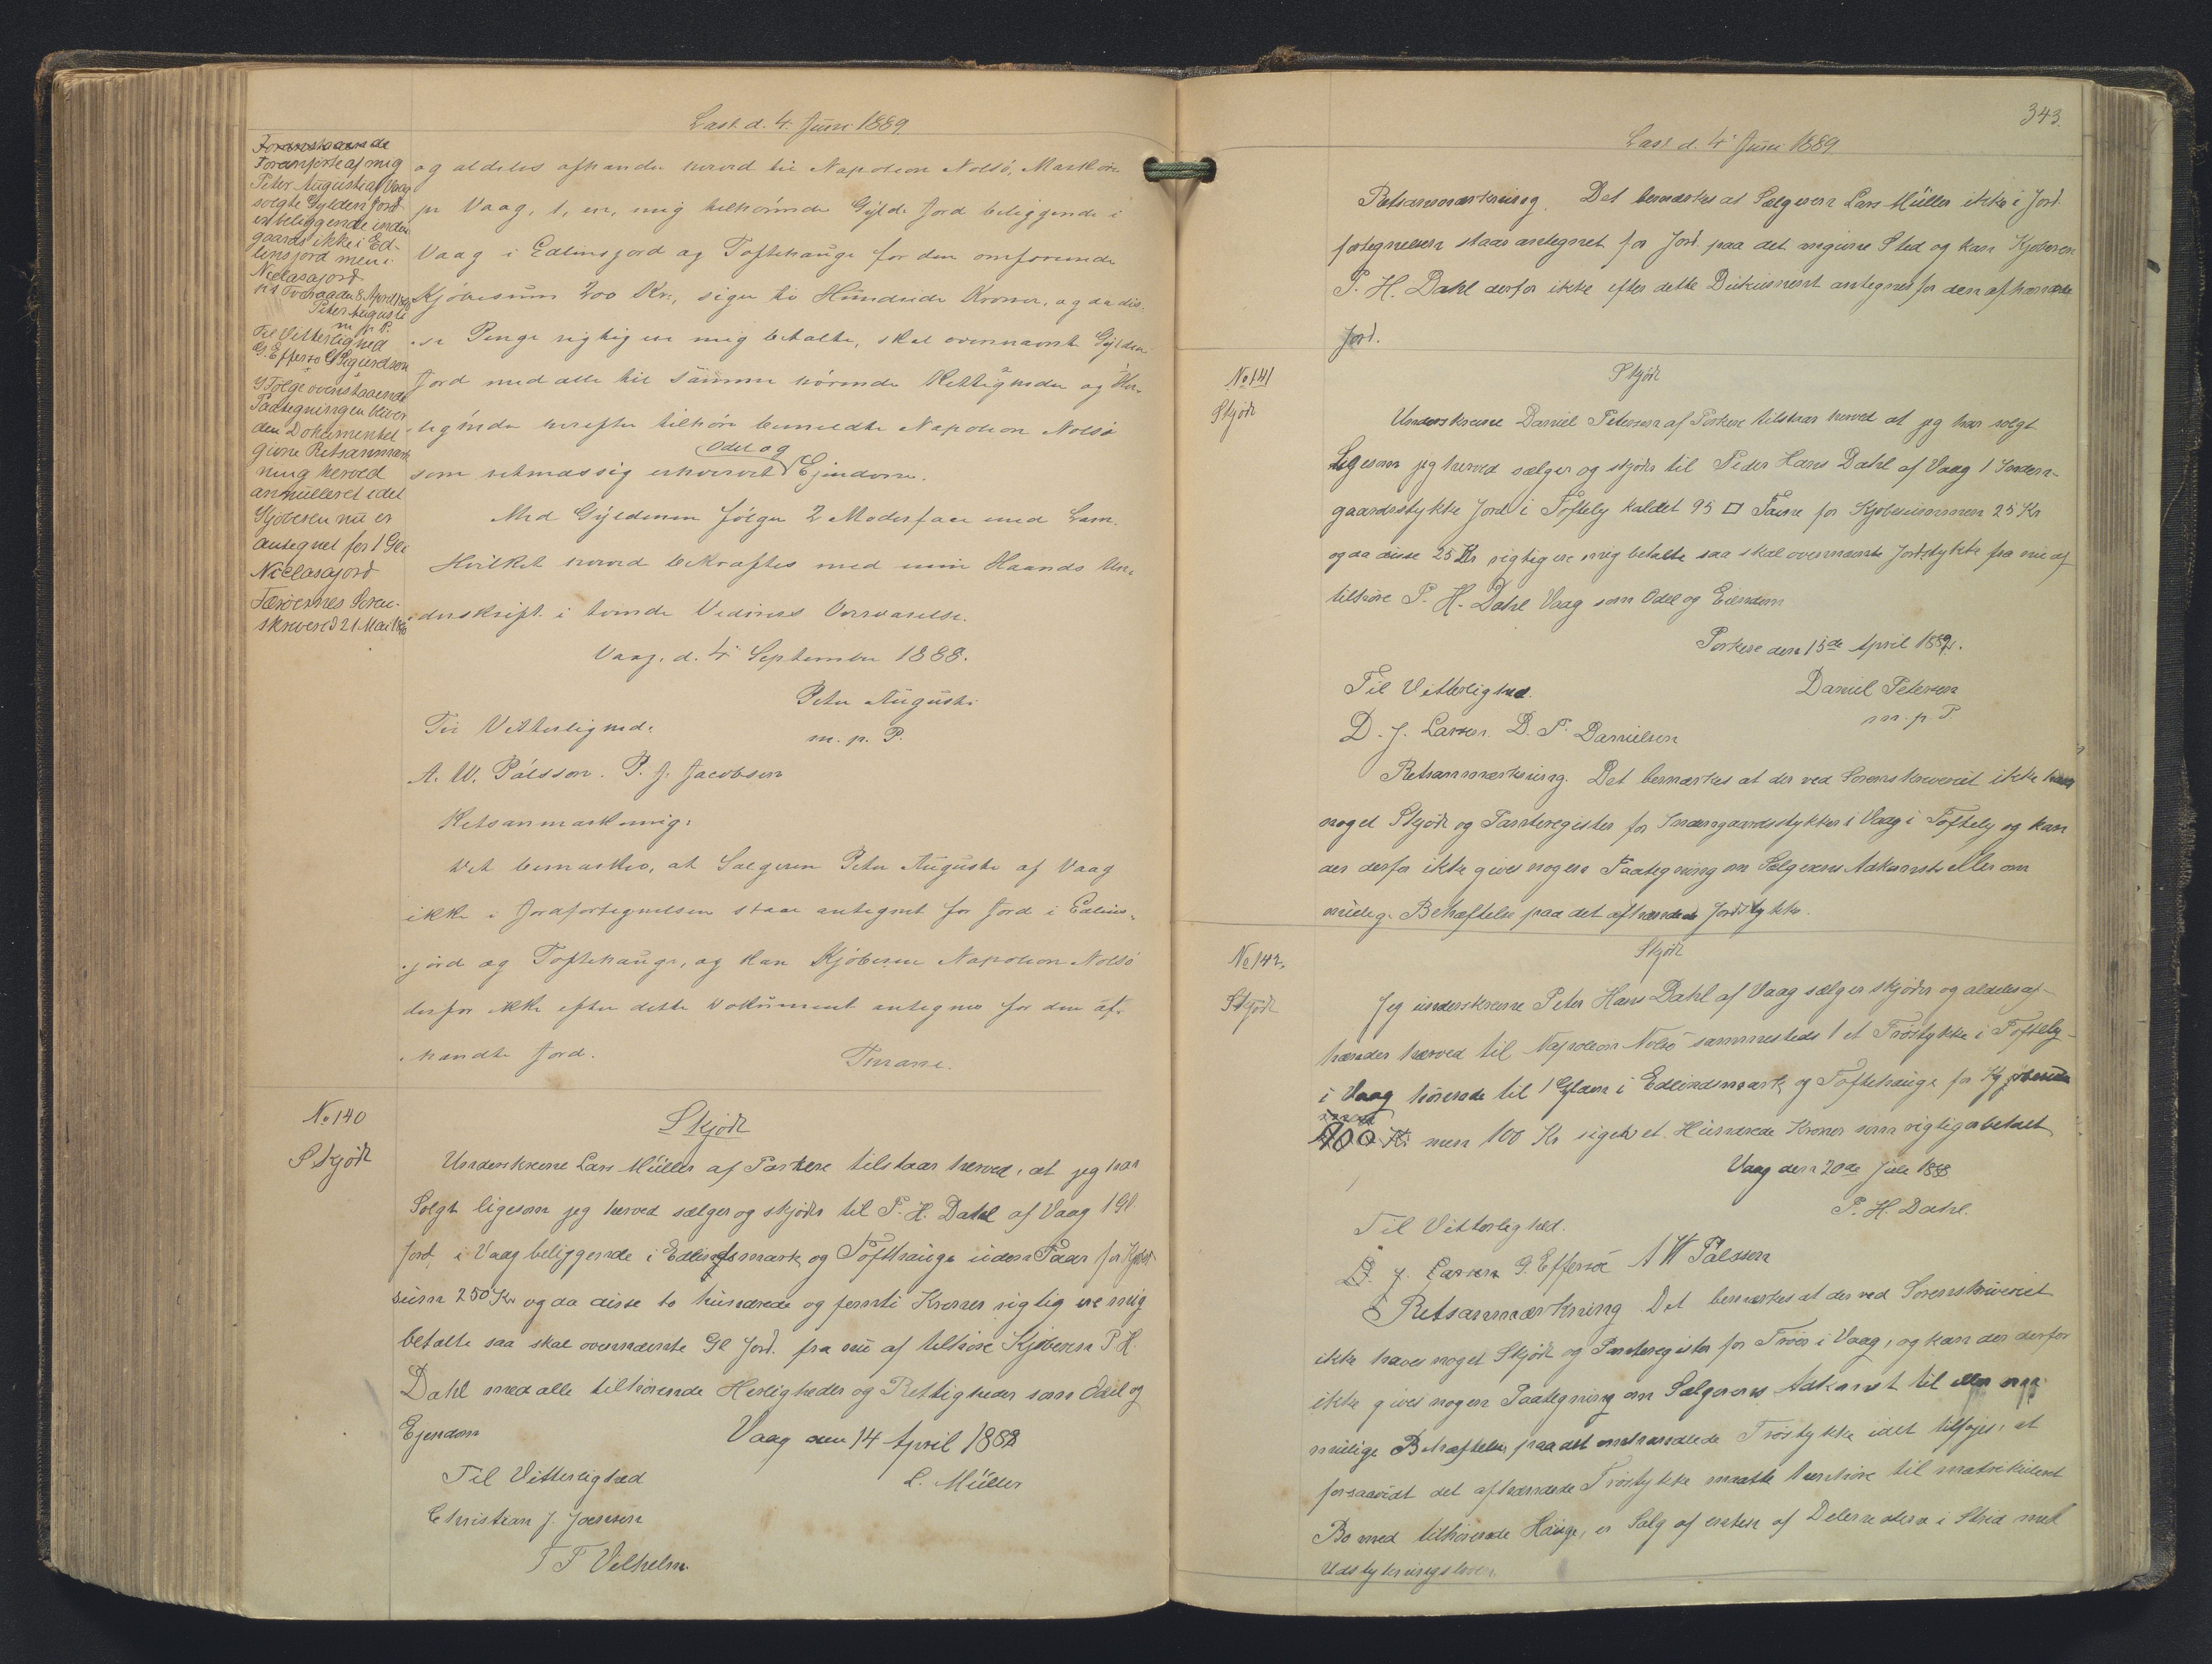 Læst d. 4. Juni 1889
Foranstaaende
Foranførte af mig
Peter Auguste af Vaag
solgte Gylden Jord
er beliggende inden
gaards ikke i Ed-
linsjord men i
Niclasajord
p.t. Tveraa den 8 April 1890
Peter Auguste
m. p. P.
Til Vitterlighed
G. Effersø Sigurdson
I Følge ovenstaaende
Paategningen bliver
den Dokumentet
givne Retsanmærk
ning herved
annulleret idet
Kjøberen nu er
antegnet for 1 Gl i
Niclasajord
Færøernes Soren-
skriveri d 21. Mai 1890
og aldeles afhænder herved til Napoleon Nolsø, Maskøre
pr Vaag, 1, en, mig tilhørende Gylde Jord beliggende i
Vaag i Edlinsjord og Toftehauge for den omforenede
Kjøbesum 200 Kr., siger to Hundrede Kroner, og da dis-
se Penge rigtig ere mig betalte, skal ovennævnte Gylden
Jord med alle til samme hørende Rettigheder og Her-
ligheder herefter tilhøre bemeldte Napoleon Nolsø
Odel og
som retmæssig erhvervet Ejendom.
Med Gyldenen følger 2 Moderfaar med Lam.
Hvilket herved bekræftes med min Haands Un-
derskrift i tvende Vidners Overværelse.
Vaag, d. 4 September 1888.
Peter Auguste
Til Vitterlighed:
m. p. P.
A. W. Pálsson. P. J. Jacobsen
Retsanmærkning:
Det bemærkes, at Sælgeren Peter Auguste af Vaag
ikke i Jordfortegnelsen staar antegnet for Jord i Edlins-
jord og Toftehauge, og kan Kjøberen Napoleon Nolsø
derfor ikke efter dette Dokument antegnes for den af-
hændte Jord.
No 140
Skjøde
Skjøde
Underskrevne Lars Müller af Porkere tilstaar herved, at jeg har
Solgt ligesom jeg herved sælger og skjøder til P. H. Dahl af Vaag 1 Gl.
Jord i Vaag beliggende i Edlingsmark og Tofthauge uden Faar for Kjøbe
sum 250 Kr og da disse to hundrede og femti Kroner rigtig ere mig
betalte saa skal ovennævnte Gl Jord. fra nu af tilhøre Kjøberen P. H.
Dahl med alle tilhørende Herligheder og Rettigheder som Odel og
Ejendom
Vaag den 14 April 1889
Til Vitterlighed
L. Müller
Christian J. Joensen
T P Velhelm.
343.
Læst d. 4 Juni 1889
Retsanmærkning. Det bemærkes at Sælgeren Lars Müller ikke i Jord
fortegnelsen staar antegnet for Jord paa det angivne Sted og kan Kjøberen
P. H. Dahl derfor ikke efter dette Dokument antegnes for den afhændte
Jord.
No 141
Skjøde
Skjøde
Underskrevne Daniel Petersen af Porkere tilstaar herved at jeg har solgt
Ligesom jeg herved sælger og skjøder til Peder Hans Dahl af Vaag 1 Inden-
gaardsstykke Jord i Toftely kaldet 95 □ Favne for Kjøbesummen 25 Kr
og da disse 25 Kr rigtig ere mig betalte saa skal ovennævnte Jordstykke fra nu af
tilhøre P. H. Dahl Vaag som Odel og Eiendom
Porkere den 15de April 1889.
Til Vitterlighed.
Daniel Petersen
m. p. P
D. J. Larsen. D. P. Danielsen
Retsanmærkning. Det bemærkes at der ved Sorenskriveriet ikke haves
noget Skjøde og Panteregister for Indengaardsstykker i Vaag i Toftely og kan
der derfor ikke gives nogen Paategning om Sælgerens Adkomst eller om
mulige Behæftelser paa det afhændede Jordstykke.
No 142,
Skjøde
Skjøde
Jeg underskrevne Peter Hans Dahl af Vaag sælger skjøder og aldeles af-
hænder herved til Napoleon Nolsø sammesteds 1 et Trøstykke i Toftely
i Vaag hørende til 1 Gylden i Edlindsmark og Toftehauge for Kjøbesum
100 Kr men 100 Kr siger et Hundrede Kroner som rigtig er betalt
Vaag den 20de Juli 1888.
P. H. Dahl.
Til Vitterlighed.
D. J. Larsen G. Effersøe A W Pálsson
Retsanmærkning. Det bemærkes at der ved Sorenskriveriet
ikke haves noget Skjøde og Panteregister for Trøer i Vaag, og kan der derfor
ikke gives nogen Paategning om Sælgerens Adkomst til eller om
mulige Behæftelser paa det omhandlede Trøstykke idet tilføjes, at
forsaavidt det afhændede Trøstykke maatte henhøre til matrikuleret
Bø med tilhørende Hauge, er Salg af enkelt af Delerne alene i Strid med
Udstykningsloven.